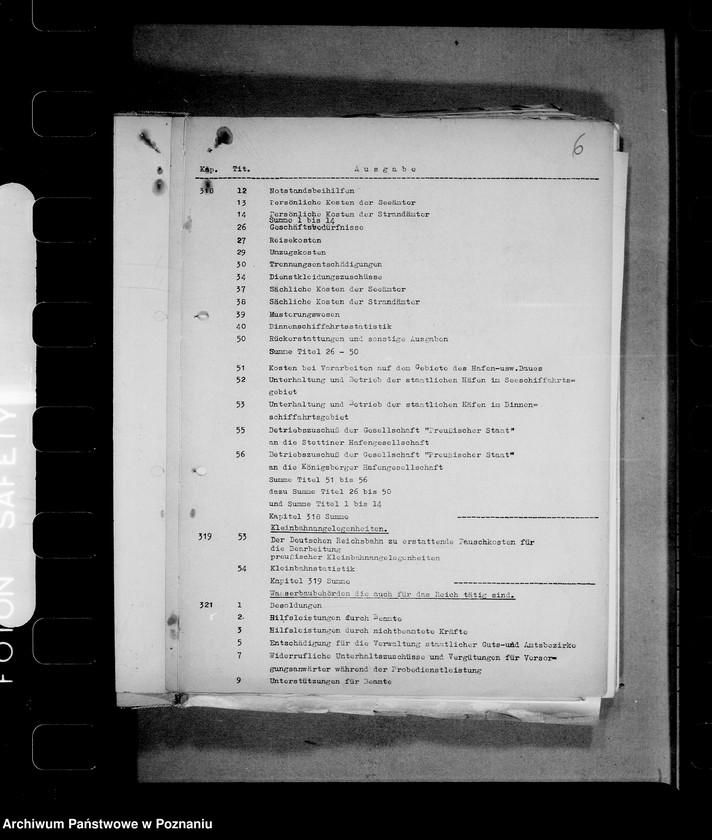 6
Kap. Tit. Ausgabe
318 12 Notstandsbeihilfen
13 Persönliche Kosten der Seeämter
14 Persönliche Kosten der Strandämter
Summe 1 bis 14
26 Geschäftsbedürfnisse
27 Reisekosten
29 Umzugskosten
30 Trennungsentschädigungen
34 Dienstkleidungszuschüsse
37 Sächliche Kosten der Seeämter
38 Sächliche Kosten der Strandämter
39 Musterungswesen
40 Binnenschiffahrtsstatistik
50 Rückerstattungen und sonstige Ausgaben
Summe Titel 26 - 50
51 Kosten bei Vorarbeiten auf dem Gebiete des Hafen-usw.Baues
52 Unterhaltung und Betrieb der staatlichen Häfen im Seeschiffahrts=
gebiet
53 Unterhaltung und Betrieb der staatlichen Häfen im Binnen=
schiffahrtsgebiet
55 Betriebszuschuß der Gesellschaft "Preußischer Staat"
an die Stettiner Hafengesellschaft
56 Betriebszuschuß der Gesellschaft "Preußischer Staat"
an die Königsberger Hafengesellschaft
Summe Titel 51 bis 56
dazu Summe Titel 26 bis 50
und Summe Titel 1 bis 14
Kapitel 318 Summe
Kleinbahnangelegenheiten.
319 53 Der Deutschen Reichsbahn zu erstattende Pauschkosten für
die Bearbeitung
preußischer Kleinbahnangelegenheiten
54 Kleinbahnstatistik
Kapitel 319 Summe
Wasserbaubehörden die auch für das Reich tätig sind.
321 1 Besoldungen
2 Hilfsleistungen durch Beamte
3 Hilfsleistungen durch nichtbeamtete Kräfte
5 Entschädigung für die Verwaltung staatlicher Guts-und Amtsbezirke
7 Widerrufliche Unterhaltszuschüsse und Vergütungen für Versor=
gungsanwärter während der Probedienstleistung
9 Unterstützungen für Beamte
FOTON SAFETY
Archiwum Państwowe w Poznaniu